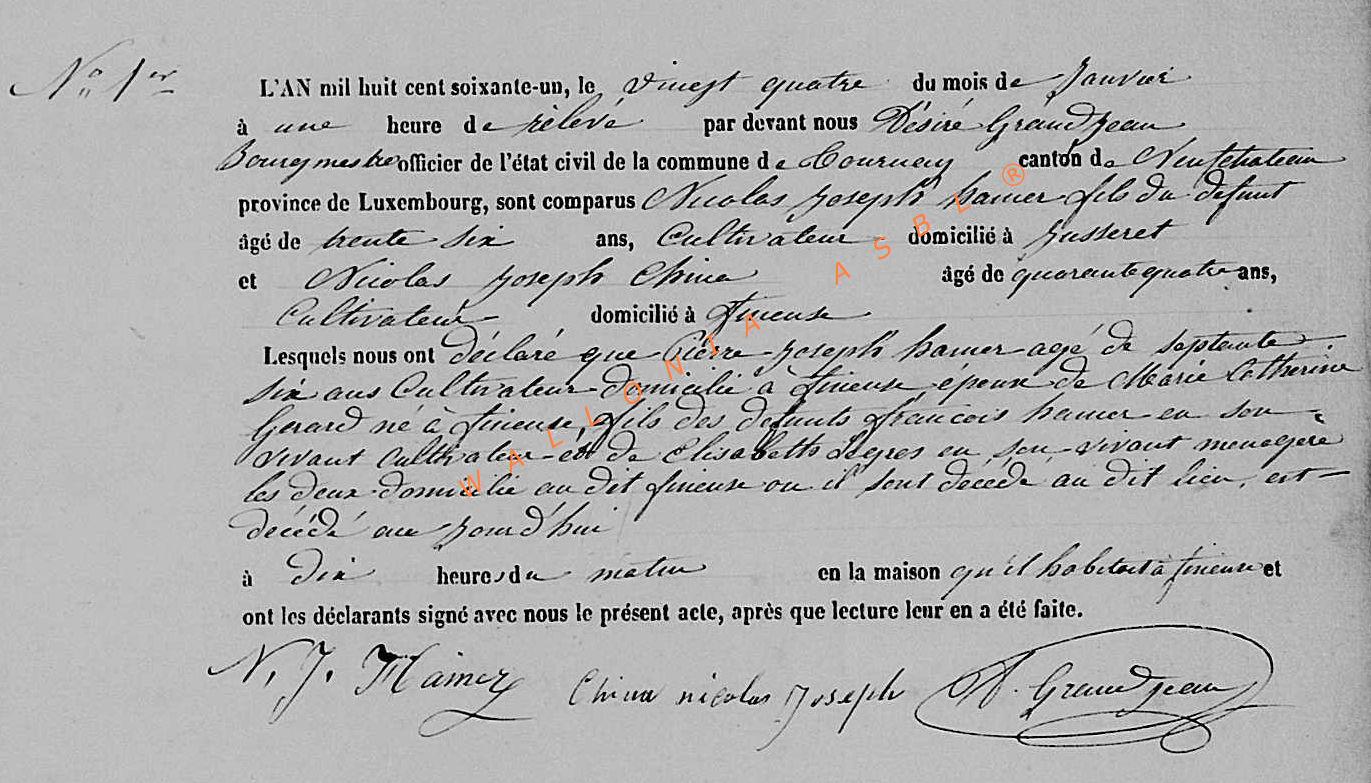 N° 1er
L'AN mil huit cent soixante-un, le vingt quatre du mois de Janvier
à une heure de rélevé par devant nous Désiré Grandjean
Bourgmestre officier de l'état civil de la commune de Tournay canton de Neufchateau
province de Luxembourg, sont comparus Nicolas Joseph hamer fils du defunt
âgé de trente six ans, Cultivateur domicilié à Jusseret
et Nicolas Joseph China âgé de quarante quatre ans,
Cultivateur domicilié à fineuse
Lesquels nous ont déclaré que Pierre Joseph hamer agé de septente
six ans Cultivateur domicilié à fineuse époux de Marie Catherine
Gerard né à fineuse, fils des defunts françois hamer en son
vivant cultivateur et de Elisabeth en son vivant menagère
les deux domicilié au dit fineuse ou il sont décédé au dit lieu, est
décédé au jourd'hui
à dix heures du matin en la maison qu'il habitoit à fineuse et
ont les déclarants signé avec nous le présent acte, après que lecture leur en a été faite.
N. J. Hamer China nicolas Joseph D. Grandjean
WALLONIA ASBL ®